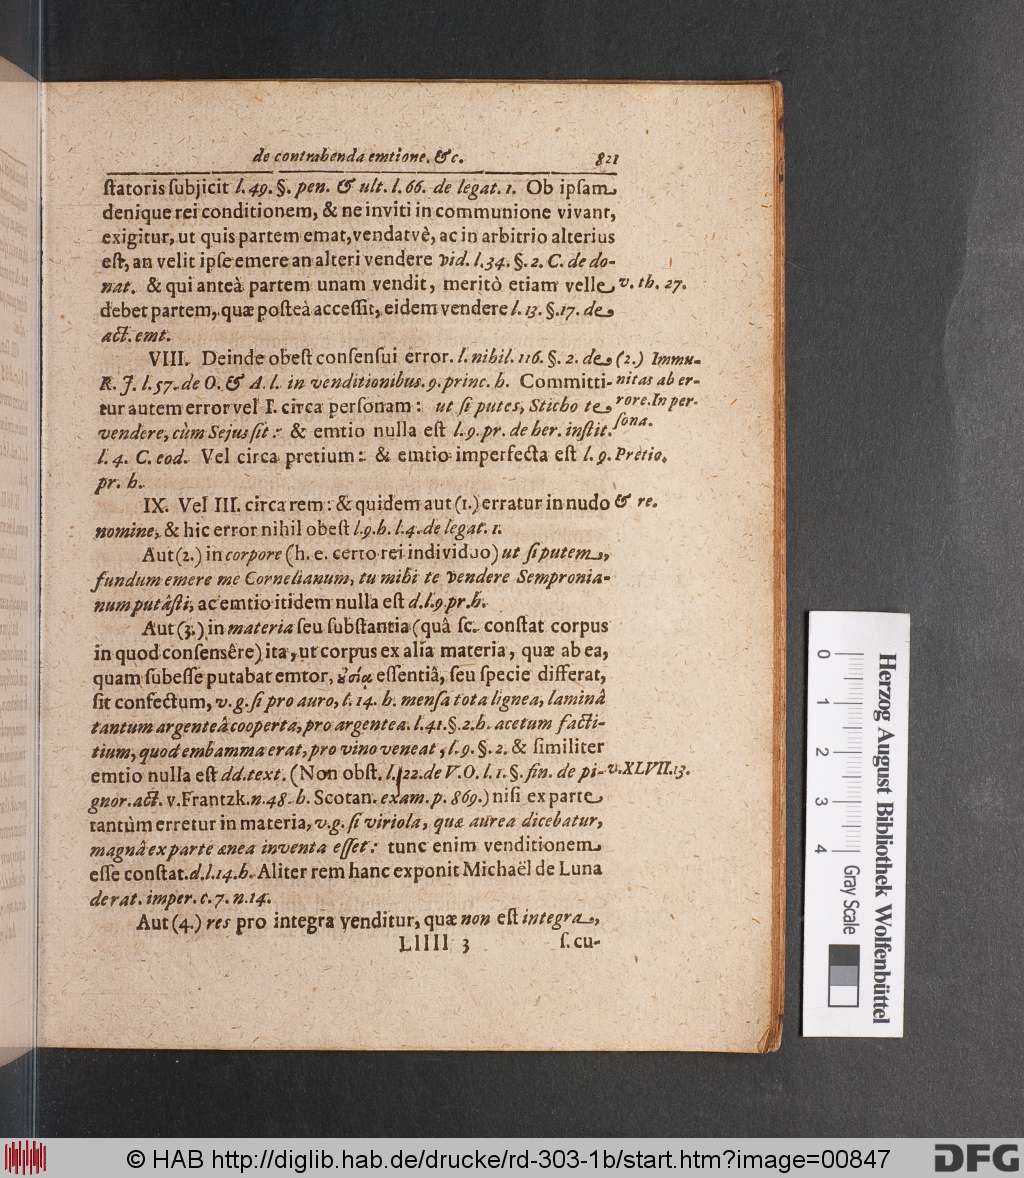 de contrahenda emtione. &c. 821
ſtatoris ſubjicit l. 49. §. pen. & ult. l. 66. de legat. 1. Ob ipſam
denique rei conditionem, & ne inviti in communione vivant,
exigitur, ut quis partem emat, vendatvè, ac in arbitrio alterius
eſt, an velit ipſe emere an alteri vendere vid. l. 34. §. 2. C. de do-
nat. & qui anteà partem unam vendit, meritò etiam velle v. th. 27.
debet partem, quæ poſteà acceſſit, eidem vendere l. 13. §. 17. de
act. emt.
VIII. Deinde obeſt conſenſui error. l. nihil. 116. §. 2. de (2.) Immu-
R. J. l. 57. de O. & A. l. in venditionibus. 9. princ. h. Committi- nitas ab er-
tur autem error vel I. circa perſonam: ut ſi putes, Sticho te rore. In per-
vendere, cùm Sejus ſit: & emtio nulla eſt l. 9. pr. de her. inſtit. ſona.
l. 4. C. eod. Vel circa pretium: & emtio imperfecta eſt l. 9. Pretio.
pr. h.
IX. Vel III. circa rem: & quidem aut (1.) erratur in nudo & re.
nomine, & hic error nihil obeſt l. 9. h. l. 4. de legat. 1.
Aut (2.) in corpore (h. e. certo rei individuo) ut ſi putem,
fundum emere me Cornelianum, tu mihi te vendere Sempronia-
num putâſti, ac emtio itidem nulla eſt d. l. 9. pr. h.
Aut (3.) in materia ſeu ſubſtantia (quâ ſc. conſtat corpus
in quod conſensêre) ita, ut corpus ex alia materia, quæ ab ea,
quam ſubeſſe putabat emtor, ȣσίᾳ eſſentiâ, ſeu ſpecie differat,
ſit confectum, v. g. ſi pro auro, l. 14. h. menſa tota lignea, laminâ
tantum argenteâ cooperta, pro argentea. l. 41. §. 2. h. acetum facti-
tium, quod embamma erat, pro vino veneat, l. 9. §. 2. & ſimiliter
emtio nulla eſt dd. text. (Non obſt. l. 22. de V. O. l. 1. §. fin. de pi- v. XLVII. 13.
gnor. act. v. Frantzk. n. 48. h. Scotan. exam. p. 869.) niſi ex parte
tantùm erretur in materia, v. g. ſi viriola, quæ aurea dicebatur,
magnâ ex parte ænea inventa eſſet: tunc enim venditionem
eſſe conſtat. d. l. 14. h. Aliter rem hanc exponit Michaël de Luna
de rat. imper. c. 7. n. 14.
Aut (4.) res pro integra venditur, quæ non eſt integra,
Lllll 3 ſ. cu-
0 1 2 3 4
Gray Scale
Herzog August Bibliothek Wolfenbüttel
© HAB http://diglib.hab.de/drucke/rd-303-1b/start.htm?image=00847
DFG